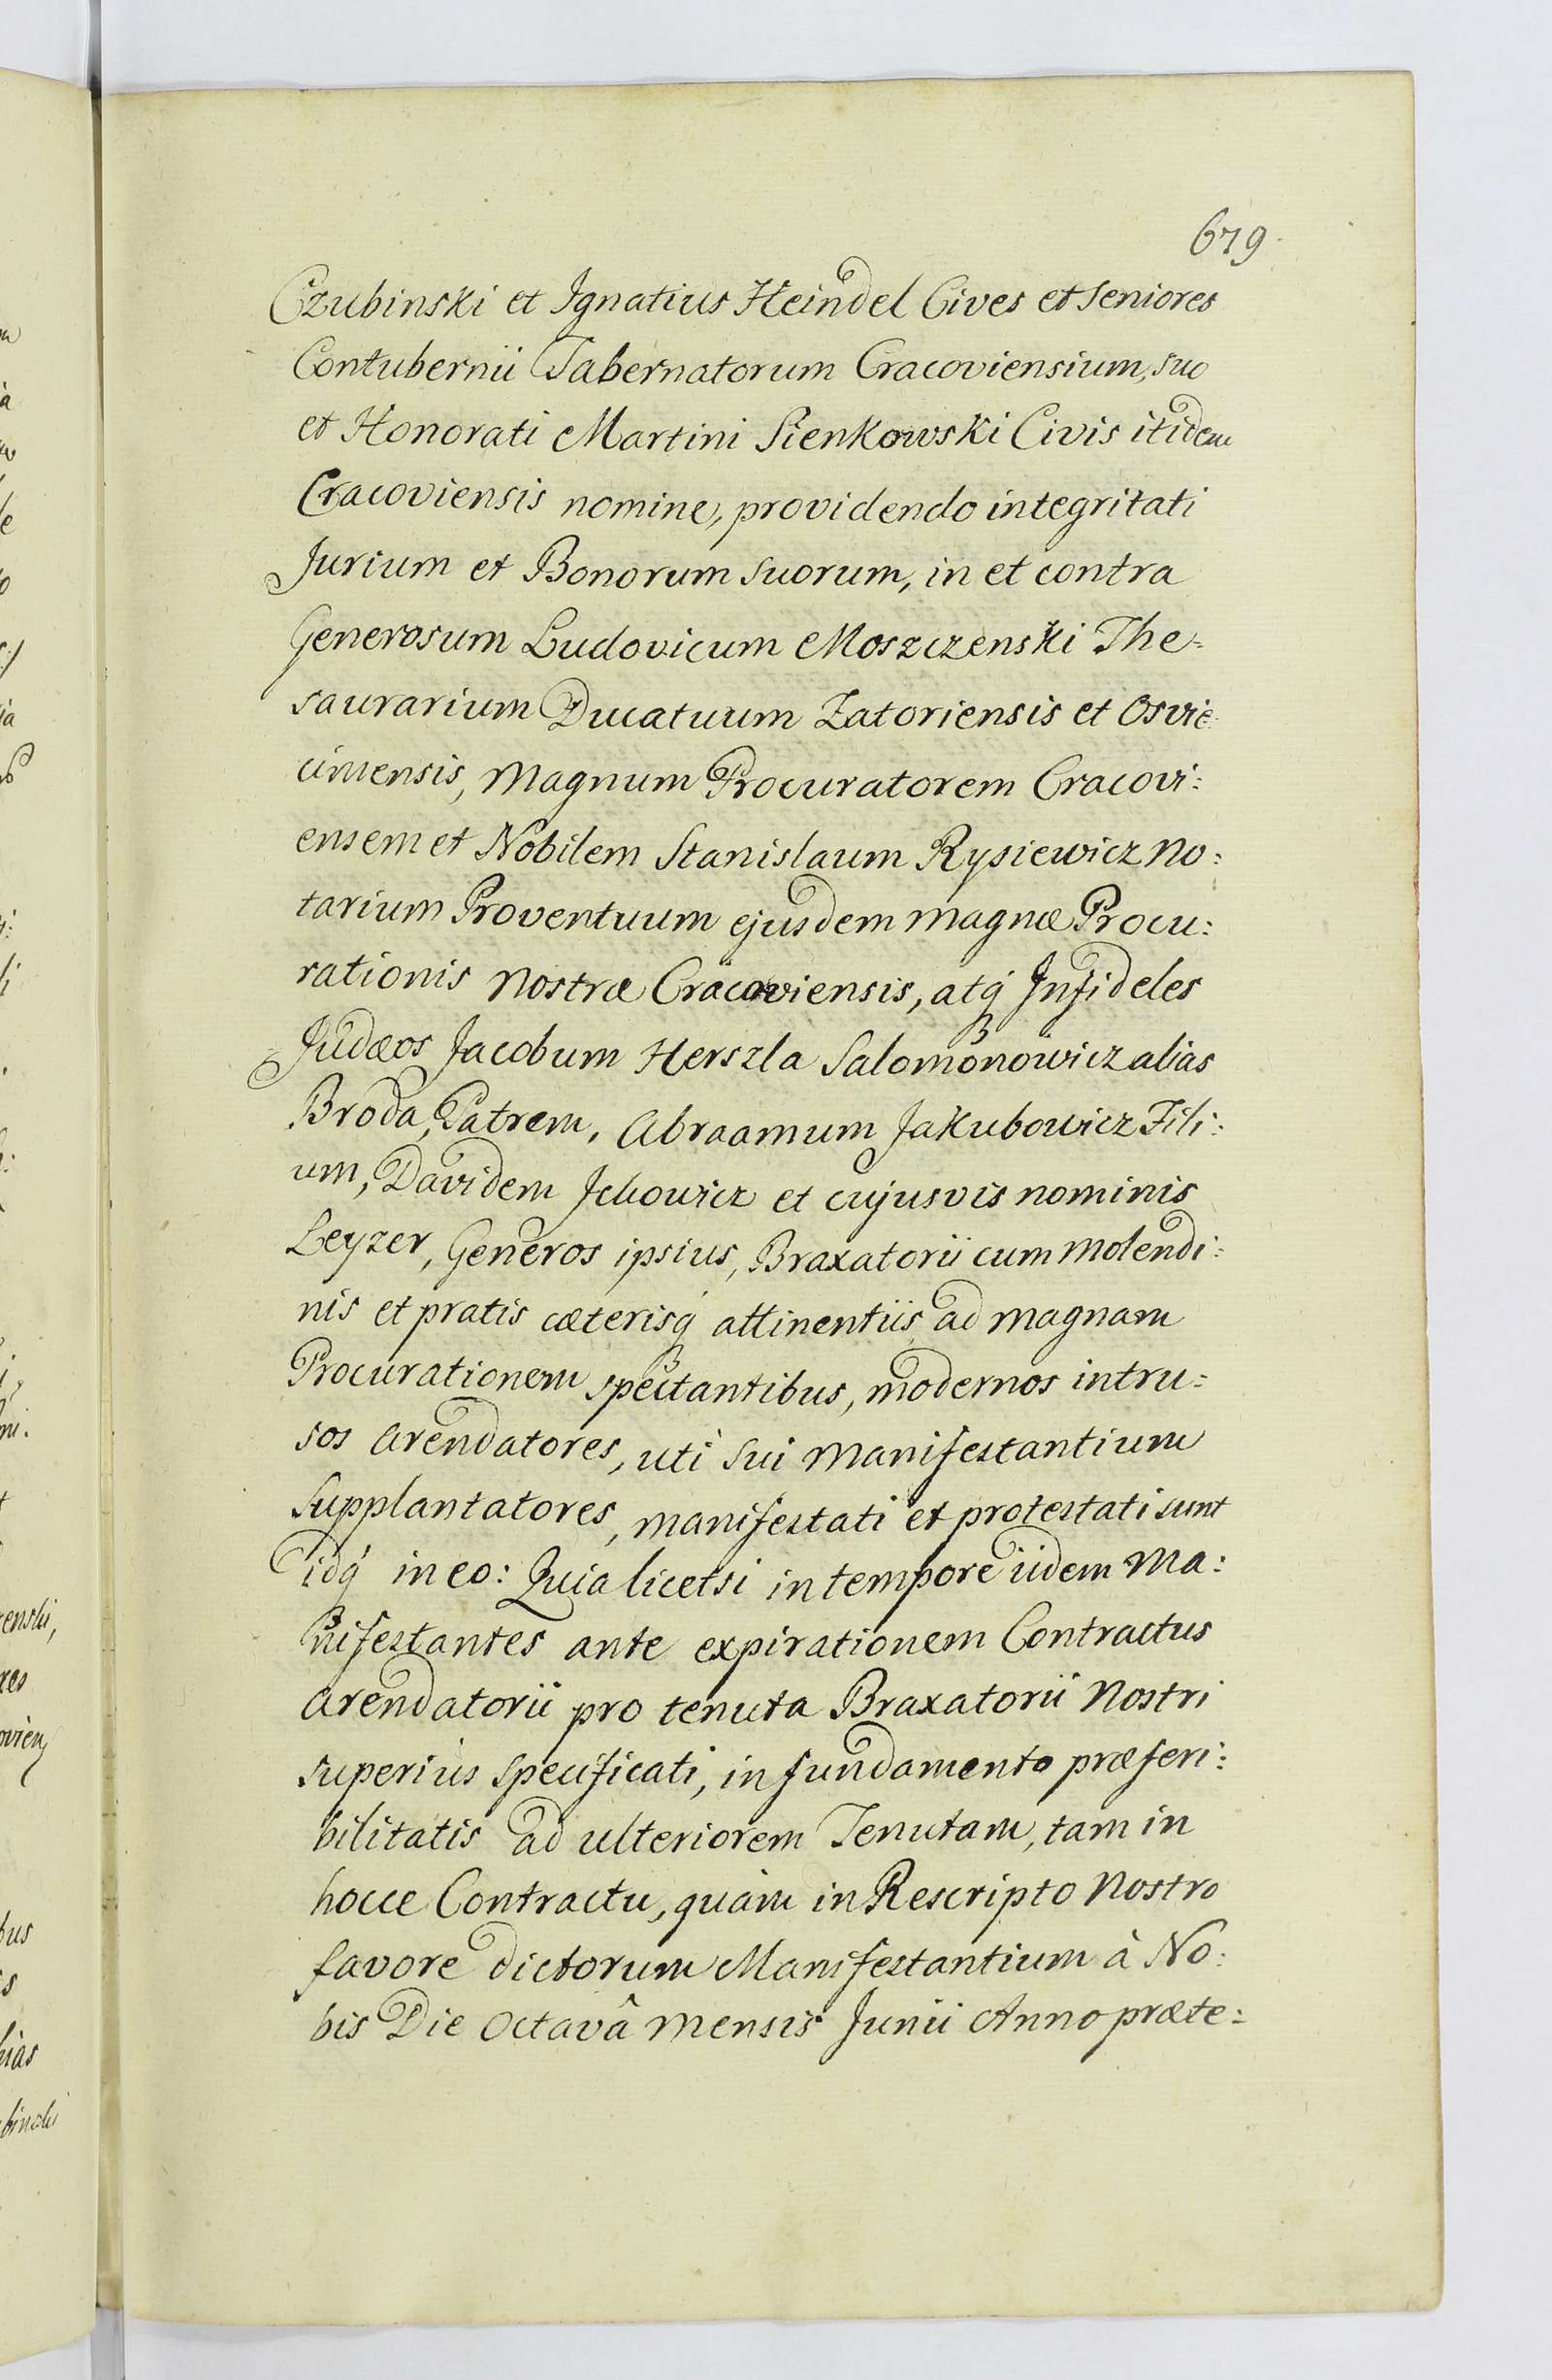 679.
Czubinski et Ignatius Heindel Cives et Seniores
Contubernii Tabernatorum Cracoviensium, suo
et Honorati Martini Sienkowski Civis itidem
Cracoviensis nomine, providendo integritati
Jurium et Bonorum suorum, in et contra
Generosum Ludovicum Moszczenski The-
saurarium Ducatuum Zatoriensis et Osvie-
cimensis, Magnum Procuratorem Cracovi:
ensem et Nobilem Stanislaum Rysiewicz No:
tarium Proventuum ejusdem Magnæ Procu:
rationis Nostræ Cracoviensis, atq́ Infideles
Judæos Jacobum Herszla Salomonowicz alias
Broda, Patrem, Abraamum Jakubowicz Fili:
um, Davidem Ickowicz et cujusvis nominis
Leyzer, Generos ipsius, Braxatorii cum Molendi:
nis et pratis cæterisq́ attinentiis ad Magnam
Procurationem spectantibus, modernos intru:
sos Arendatores, uti sui Manifestantium
Supplantatores, manifestati et protestati sunt
idq́ in eo: Quia licetsi in tempore iidem Ma:
nifestantes ante expirationem Contractus
Arendatorii pro tenuta Braxatorii Nostri
superius specificati, in fundamento præferi:
bilitatis ad ulteriorem Tenutam, tam in
hocce Contractu, quàm in Rescripto Nostro
favore dictorum Manifestantium à No:
bis Die Octavâ Mensis Junii Anno præte: